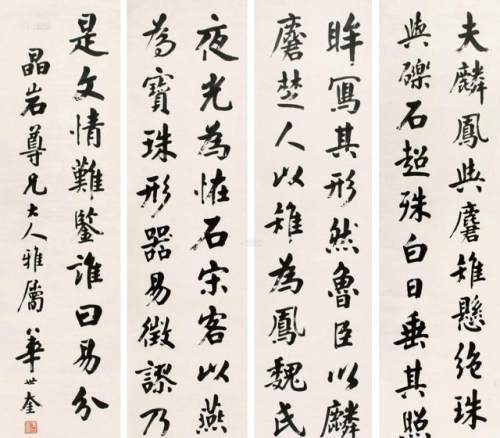 夫麟鳳與麏雉懸絕珠
與礫石超殊白日垂其照
眸寫其形然魯臣以麟
麏楚人以雉為鳳魏氏
夜光為恠石宋客以燕
為寶珠形器易徵謬乃
是文情難鑒誰曰易分
晶岩尊兄大人雅屬 華世奎